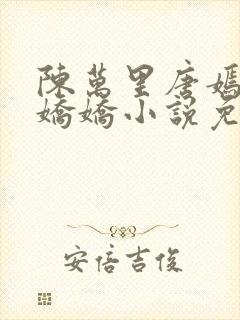 陳萬里唐嫣
嬌嬌小說免
安倍吉俊